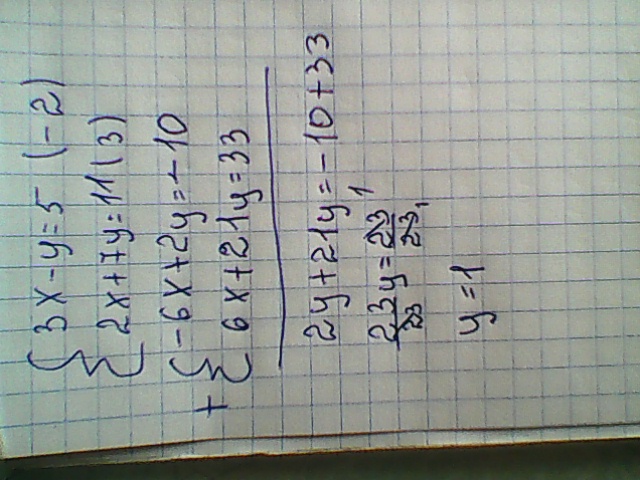 { 3x-y=5 (-2)
{ 2x+7y=11 (3)
+ { -6x+2y=-10
{ 6x+21y=33
2y+21y=-10+33
23y/23=23/23 1 1
y=1